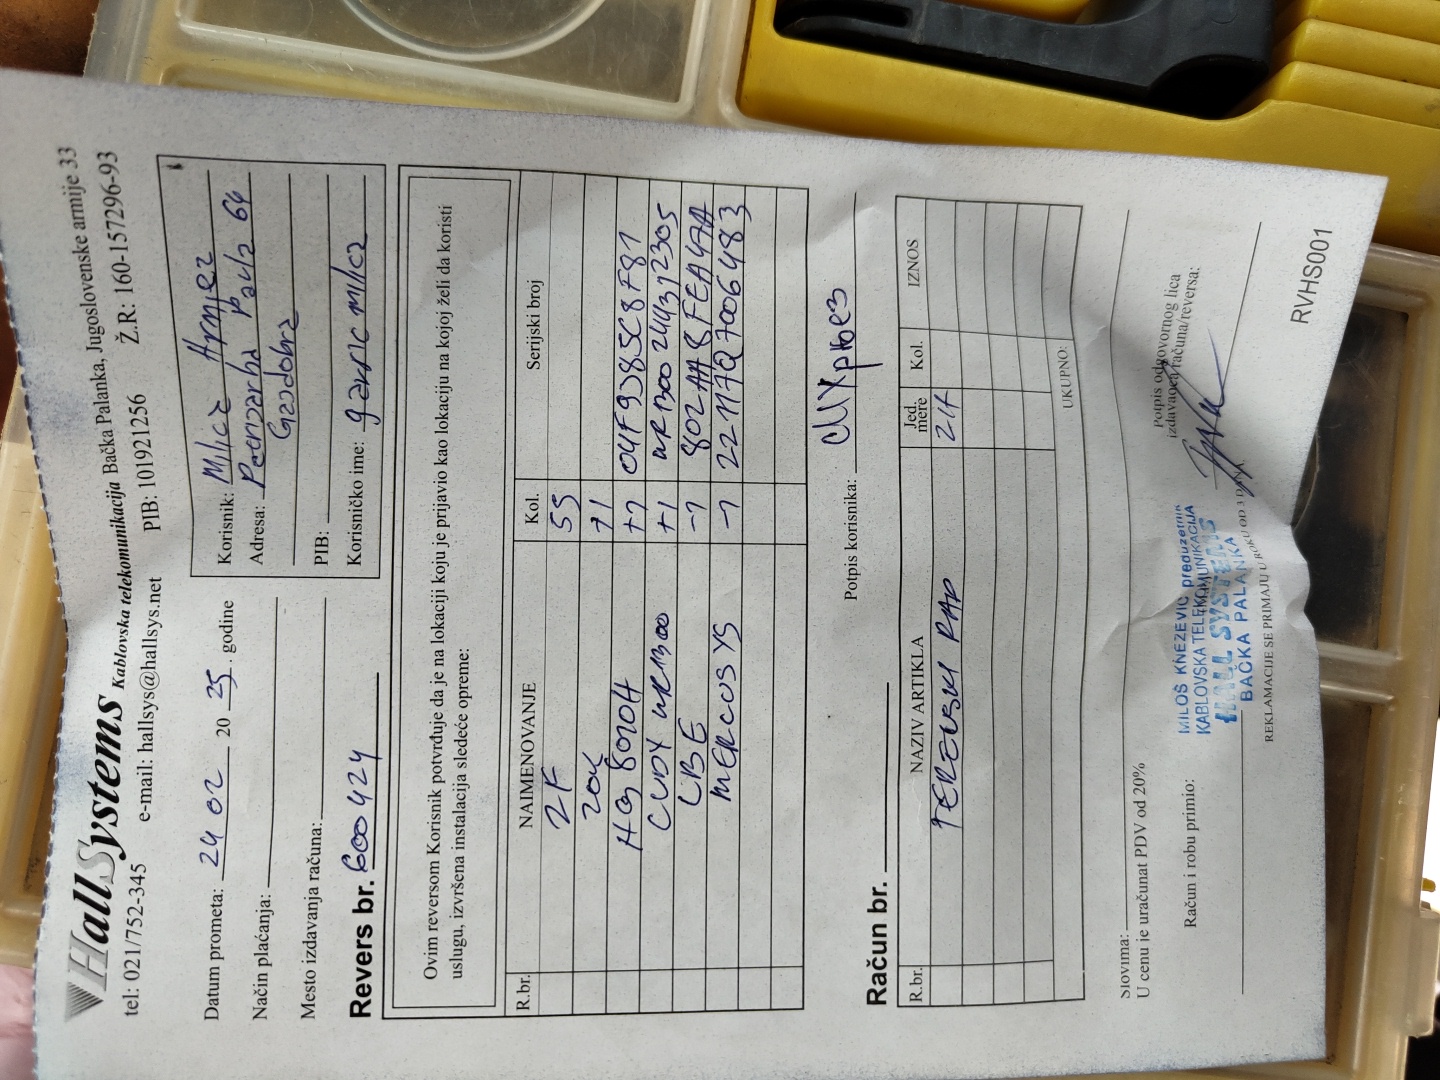 HallSystems Kablovska telekomunikacija Bačka Palanka, Jugoslovenske armije 33
tel: 021/752-345 e-mail: hallsys@hallsys.net PIB: 101921256 Ž.R: 160-157296-93
Datum prometa: 24 02 20 25. godine
Način plaćanja:
Mesto izdavanja računa:
Revers br. 600424
Korisnik: Milica
Adresa: Pavla 64
PIB:
Korisničko ime: milica
Ovim reversom Korisnik potvrđuje da je na lokaciji koju je prijavio kao lokaciju na kojoj želi da koristi
uslugu, izvršena instalacija sledeće opreme:
R.br. NAIMENOVANJE Kol. Serijski broj
2F 55
+1
HG8020H +1
CUDY WR1300 +1 WR1300
LBE -1 802AA8FEA4AA
MERCUSYS -1
Potpis korisnika:
Račun br.
R.br. NAZIV ARTIKLA Jed. mere Kol. IZNOS
TERENSKI RAD
UKUPNO:
Slovima:
U cenu je uračunat PDV od 20%
Račun i robu primio:
Potpis odgovornog lica
izdavaoca računa/reversa:
MILOŠ KNEŽEVIĆ preduzetnik
KABLOVSKA TELEKOMUNIKACIJA
HALL SYSTEMS
BAČKA PALANKA
REKLAMACIJE SE PRIMAJU U ROKU OD 3 DANA.
RVHS001